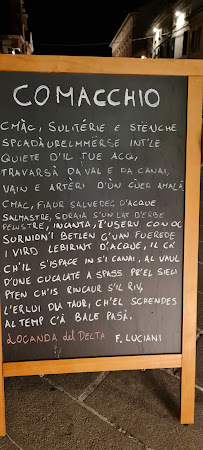 COMACCHIO
CMÀC, SULITÉRIE E STËNCHE
SPCADÀURELMMËRSE INT'LE
QUIETE D'IL TUE ACQ,
TRAVARSÀ DA VAL E DA CANAI,
VAIN E ARTÉRI D'ÓN CUER AMALÀ.
CMAC, FIAUR SALVEDEG D'ACQUE
SALMASTRE, SDRAIA S'UN LAT D'ERBE
PELUSTRE, INCANTA, I'USERV CON OC
SURNION'I BETLEN G'UAN FUEREDE
I VIRD LEBIRINT D'ACQUE, IL CÀ
CH'IL S'ISPACE IN S'I CANAI, AL VAUL
D'ONE CUCALATE A SPASS PR'EL SIEL
PTEN CH'IS RINCAUR S'IL RIV,
L'ERLUI DLA TAUR, CH'EL SCRENDES
AL TEMP C'À BALE PASÀ.
LOCANDA del DELTA F. LUCIANI